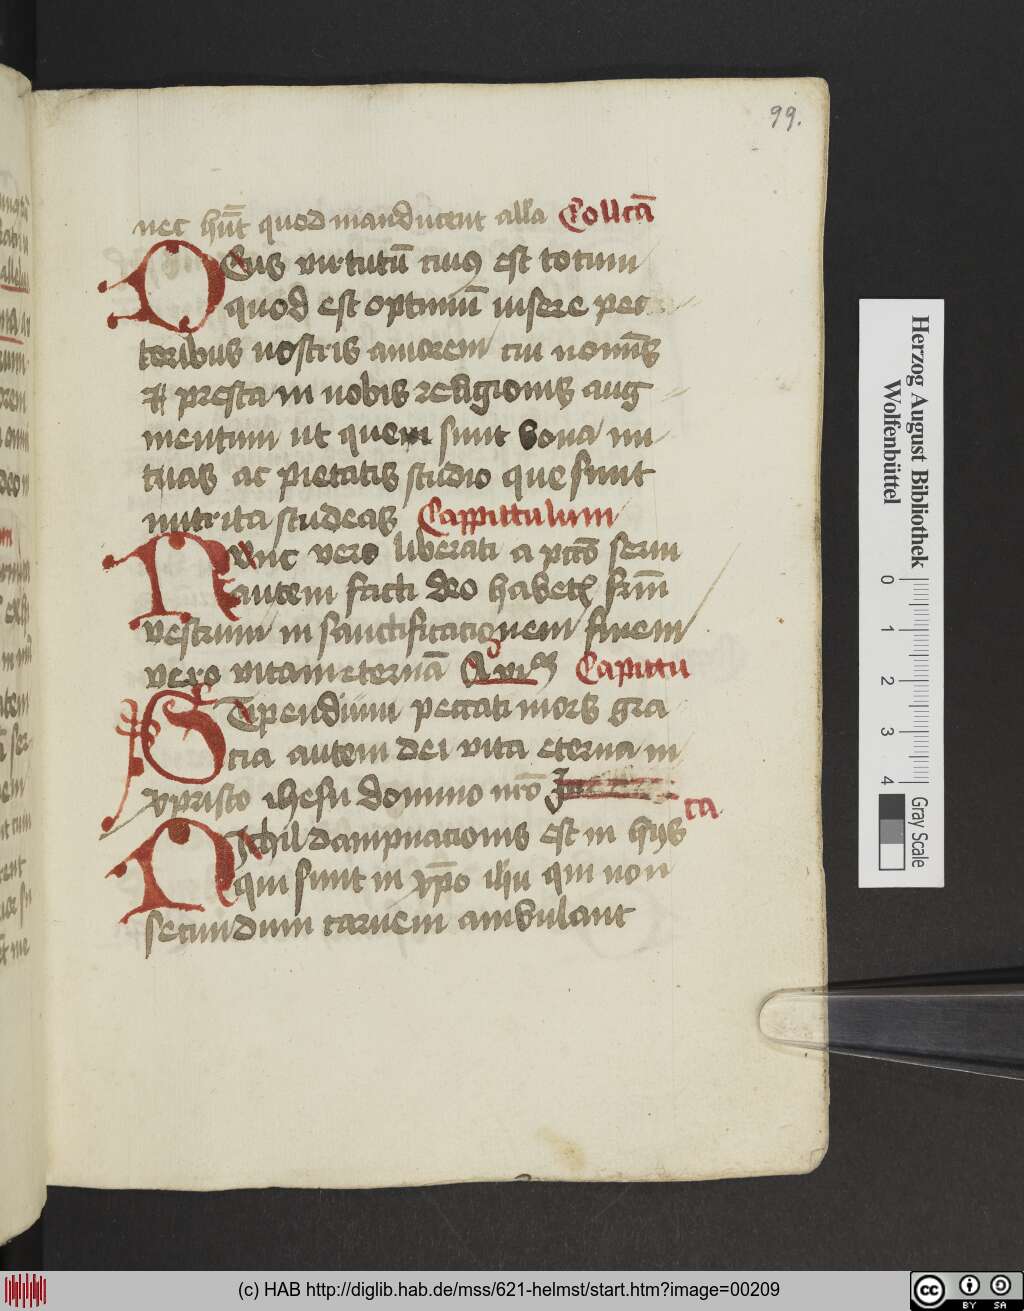 99.
nec hūt quod manducent alla Collcā
Deus virtutū cuiꝰ est totum
quod est optimū insere pec
toribus nostris amorem tui nomīs
et presta in nobis religionis aug
mentum ut quem sunt bona nu
tuas ac pietatis studio que sunt
nutrita studeas Cappittulum
Nunc vero liberati a pctō serui
autem facti deo habetꝭ frm̄
vestrum in sanctificationem finem
vero vitam eternā Capittu
Stipendium peccati mors gra
cia autem dei vita eterna in
xpristo ihesu domino nrō
ta
Nichil dampnacionis est in hys
qui sunt in xp̄o ihu qui non
secundum carnem ambulant
Herzog August Bibliothek
Wolfenbüttel
0 1 2 3 4
Gray Scale
(c) HAB http://diglib.hab.de/mss/621-helmst/start.htm?image=00209
cc BY SA